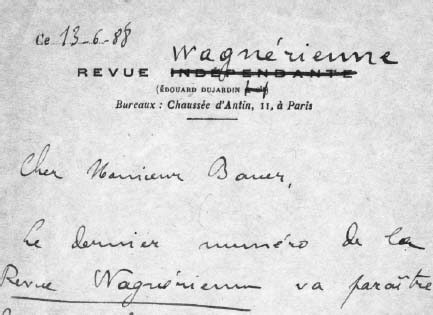 Ce 13-6-88
Wagnérienne
REVUE INDÉPENDANTE
(ÉDOUARD DUJARDIN
Bureaux : Chaussée d'Antin, 11, à Paris
Cher Monsieur Bauer,
Le dernier numéro de la
Revue Wagnérienne va paraître